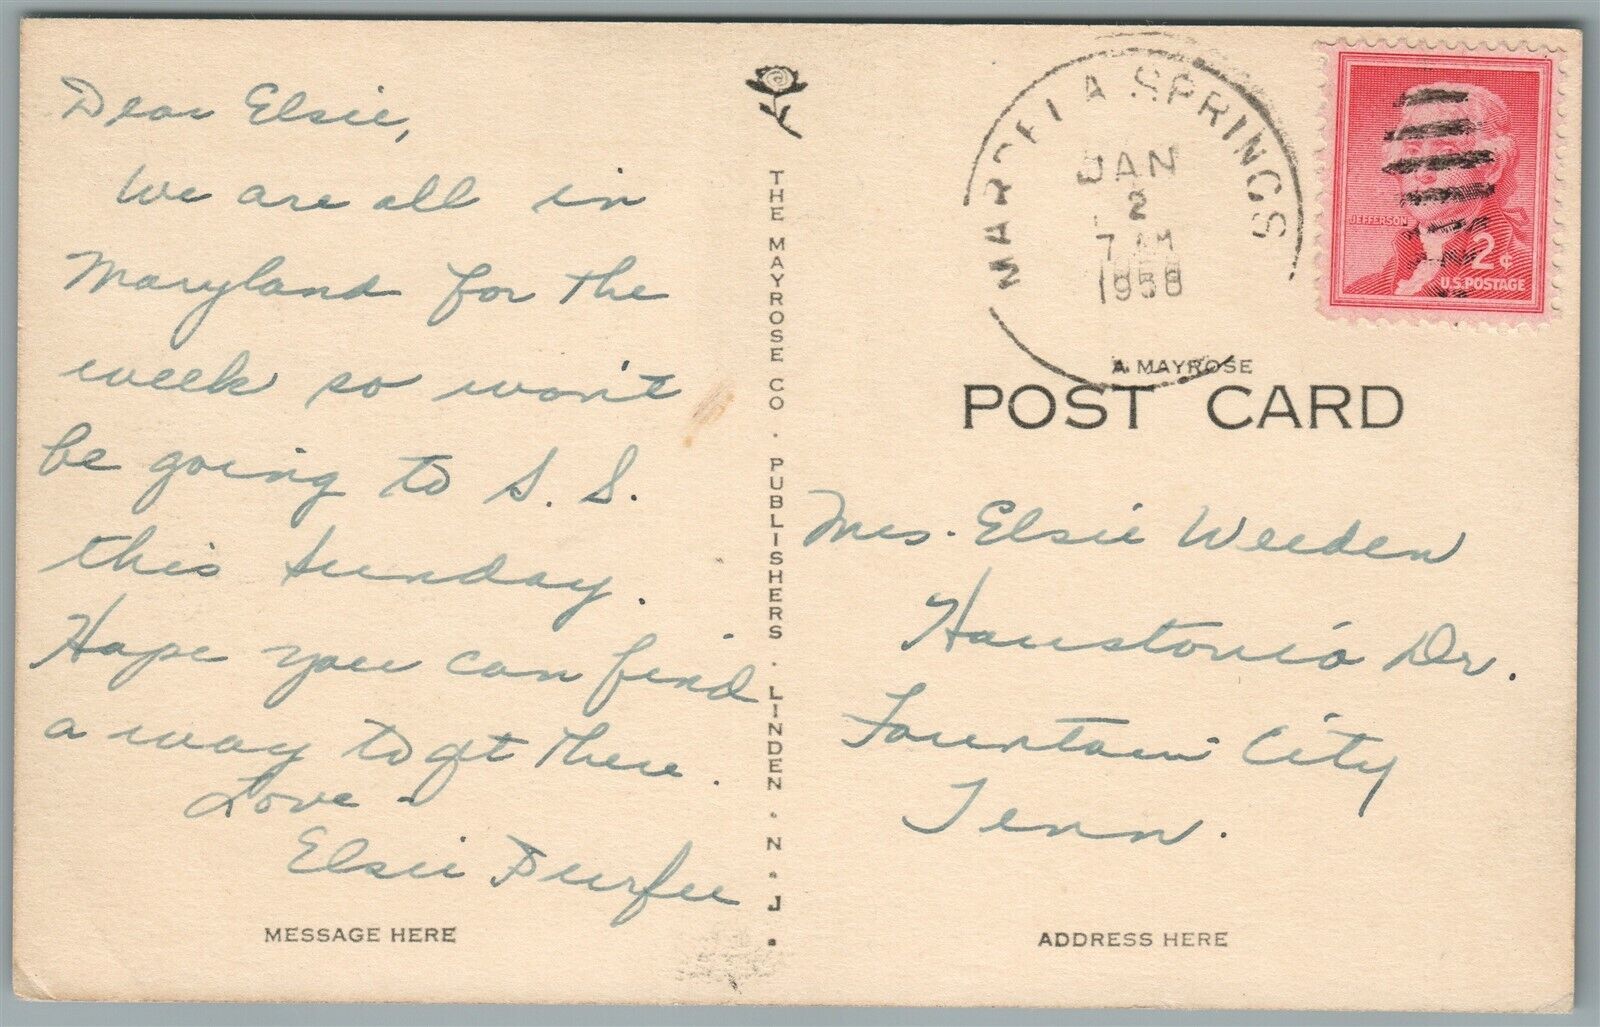 Dear Elsie,
We are all in
Maryland for the
week so won't
be going to S. S.
this Sunday.
Hope you can find
a way to get there.
Love -
Elsie Durfee
MESSAGE HERE
THE MAYROSE CO. PUBLISHERS. LINDEN. N. J.
MARDELA SPRINGS
JAN
2
7 AM
1958
JEFFERSON
2¢
U.S. POSTAGE
A MAYROSE
POST CARD
Mrs. Elsie Weeden
Haustonia Dr.
Fountain City
Tenn.
ADDRESS HERE